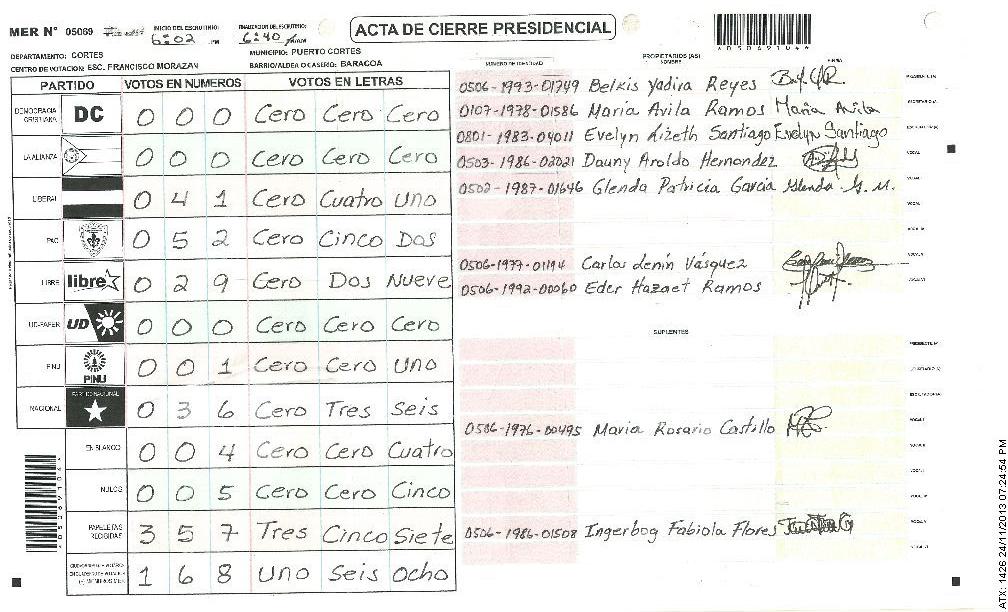 MER N° 05069
INICIO DEL ESCRUTINIO: 6:02 PM
FINALIZACION DEL ESCRUTINIO: 6:40
ACTA DE CIERRE PRESIDENCIAL
DEPARTAMENTO: CORTES
MUNICIPIO: PUERTO CORTES
CENTRO DE VOTACION: ESC. FRANCISCO MORAZAN
BARRIO/ALDEA O CASERIO: BARACOA
PARTIDO VOTOS EN NUMEROS VOTOS EN LETRAS
DEMOCRACIA CRISTIANA DC 0 0 0 Cero Cero Cero
LA ALIANZA 0 0 0 Cero Cero Cero
LIBERAL 0 4 1 Cero Cuatro Uno
PAC 0 5 2 Cero Cinco Dos
LIBRE libre 0 2 9 Cero Dos Nueve
UD-FAPER UD 0 0 0 Cero Cero Cero
PINU PINU 0 0 1 Cero Cero Uno
NACIONAL PARTIDO NACIONAL 0 3 6 Cero Tres Seis
EN BLANCO 0 0 4 Cero Cero Cuatro
NULOS 0 0 5 Cero Cero Cinco
PAPELETAS RECIBIDAS 3 5 7 Tres Cinco Siete
1 6 8 Uno Seis Ocho
NUMERO DE IDENTIDAD PROPIETARIOS (AS) NOMBRE FIRMA
0506-1993-01749 Belkis Yadira Reyes
0107-1978-01586 Maria Avila Ramos Maria Avila
0801-1983-04011 Evelyn Lizeth Santiago Evelyn Santiago
0503-1986-02021 Dauny Aroldo Hernandez VOCAL I
0502-1987-01646 Glenda Patricia Garcia Glenda G. M.
0506-1977-01194 Carlos Lenin Vásquez
0506-1992-00060 Eder Hazaet Ramos
SUPLENTES
0506-1976-00495 Maria Rosario Castillo
0506-1986-01508 Ingerbog Fabiola Flores
ATX: 1426 24/11/2013 07:24:54 PM